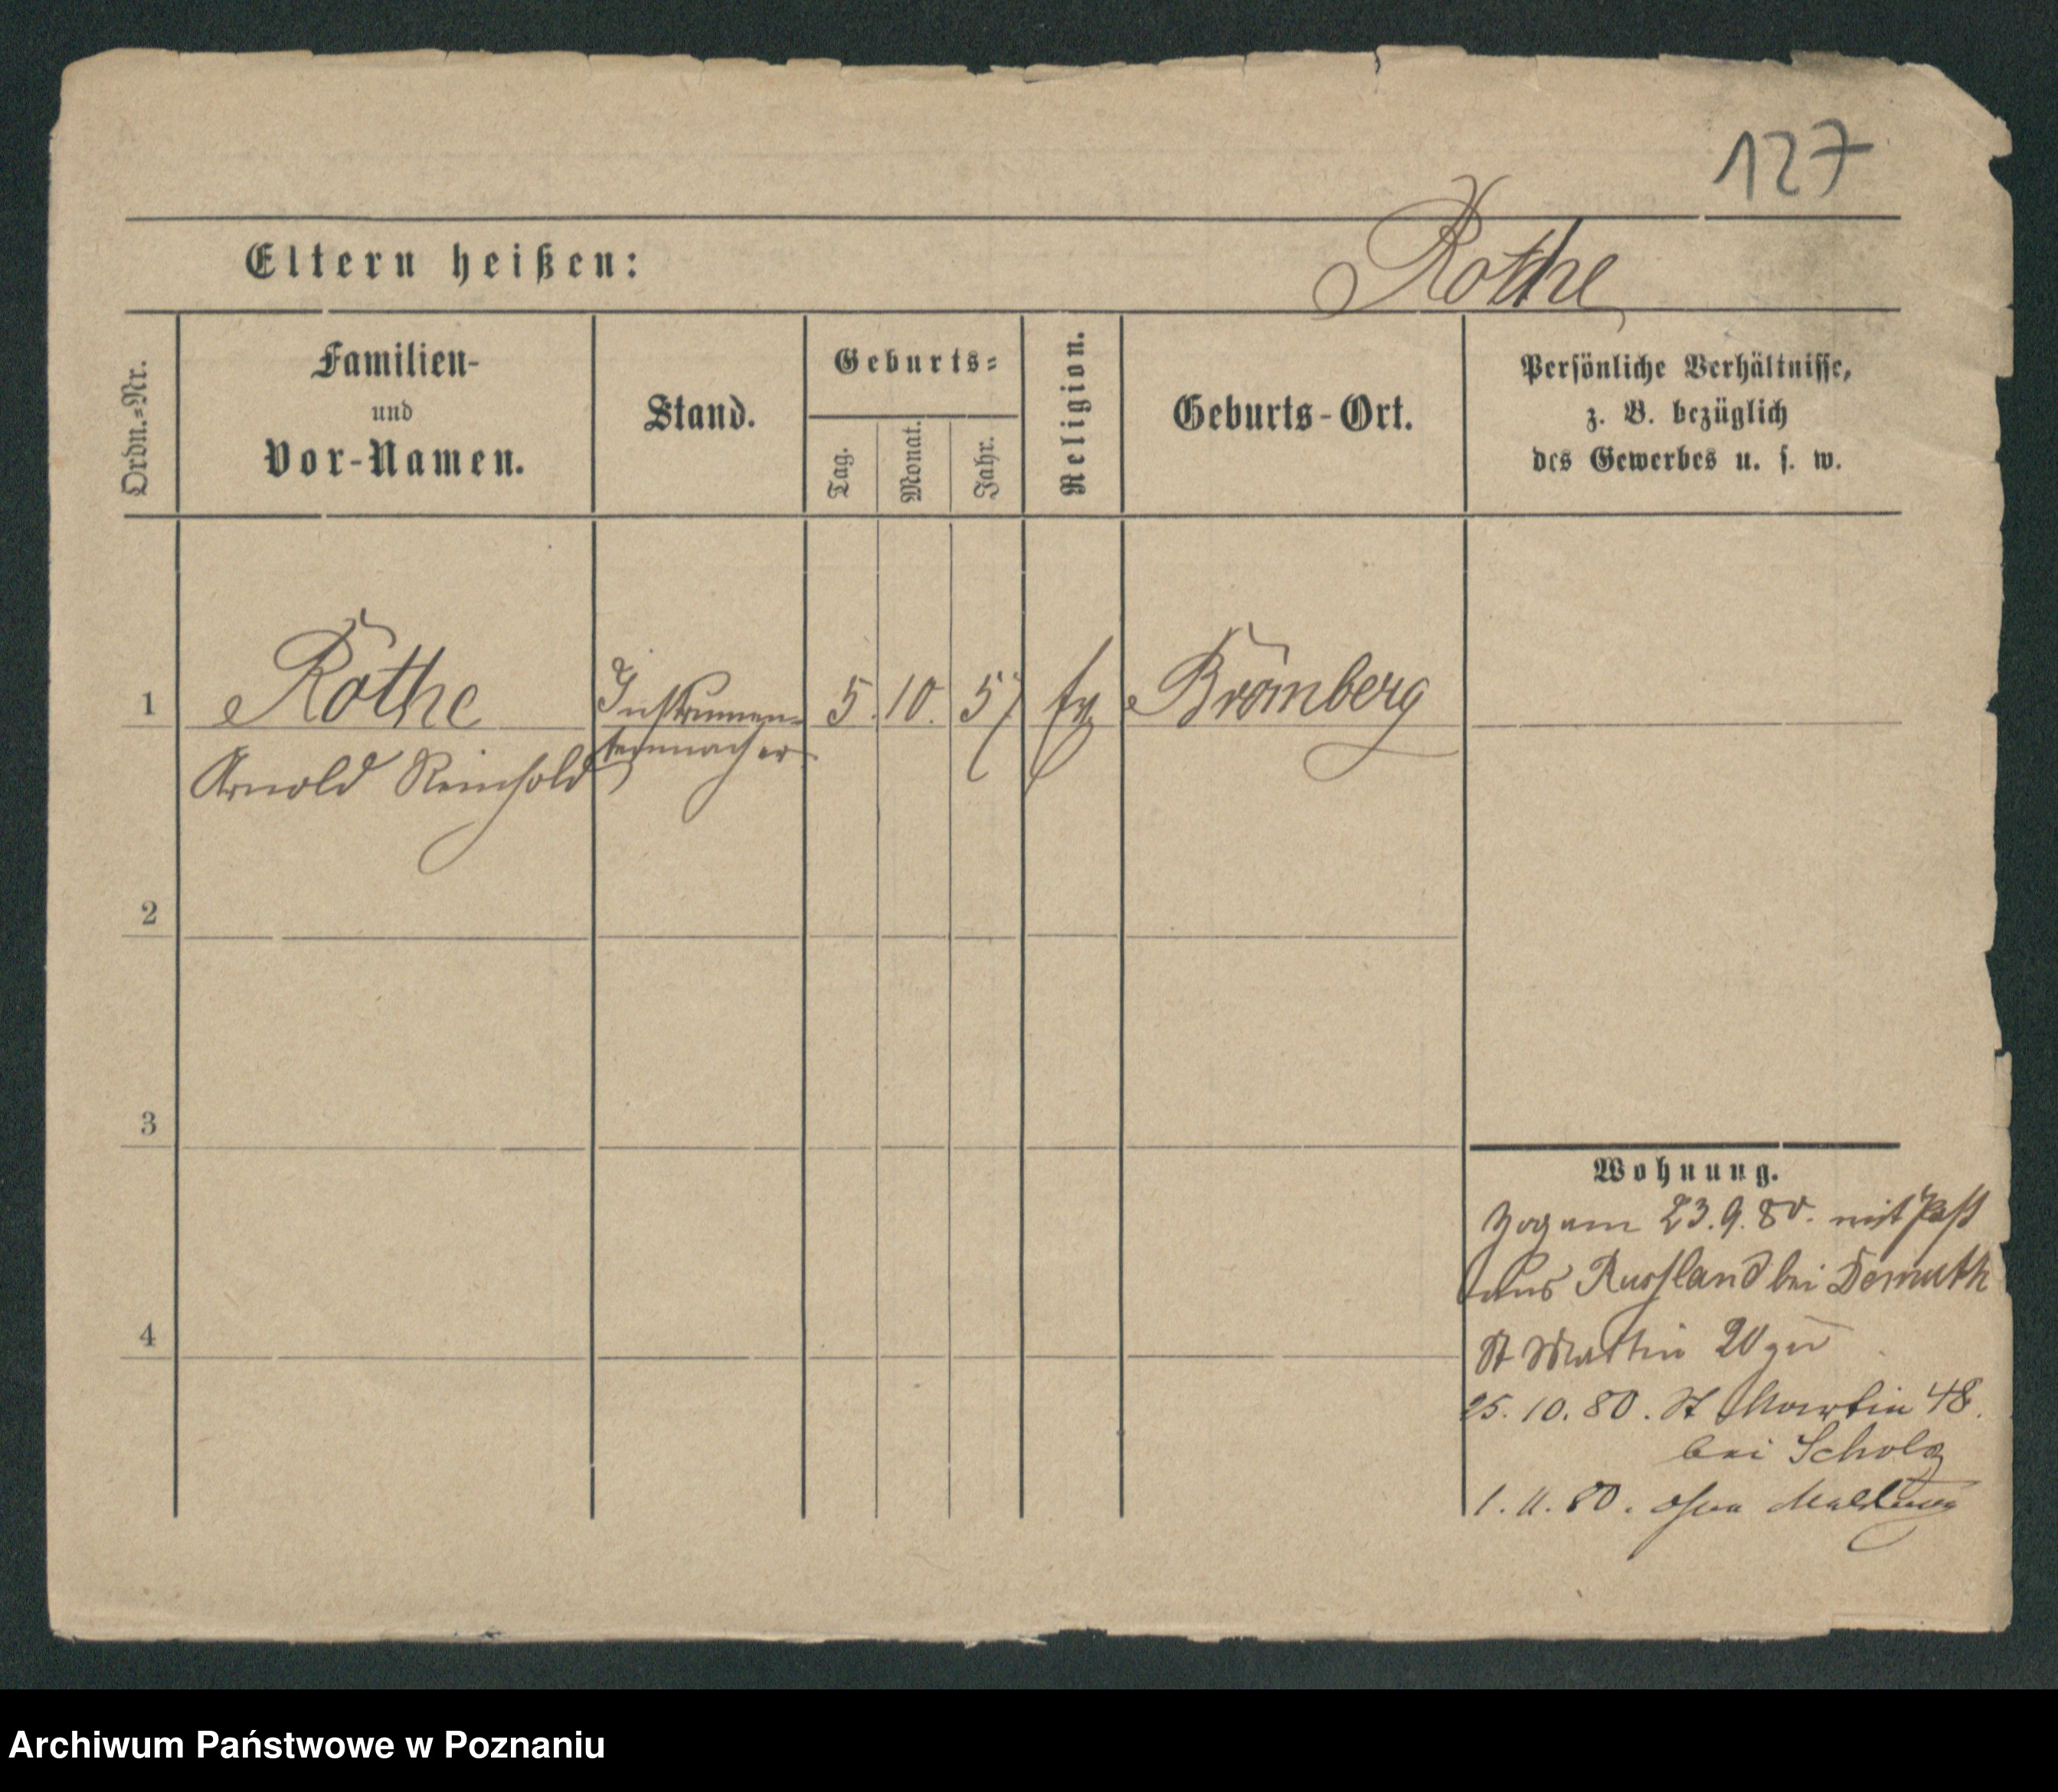 127
Eltern heißen:
Rothe
Ordn.-Nr.
Familien-
und
Vor-Namen.
Stand.
Geburts-
Tag.
Monat.
Jahr.
Religion.
Geburts-Ort.
Persönliche Verhältnisse,
z. B. bezüglich
des Gewerbes u. s. w.
1
Rothe
Arnold Reinhold
Instrumen-
tenmacher
5.
10.
57
ev
Bromberg
2
3
4
Wohnung.
Zog am 23.9.80. mit Paß
aus Russland bei Demuth
St Martin 20 zu
25. 10. 80. St Martin 48.
bei Scholz
1. 11. 80. ohne Meldung
Archiwum Państwowe w Poznaniu